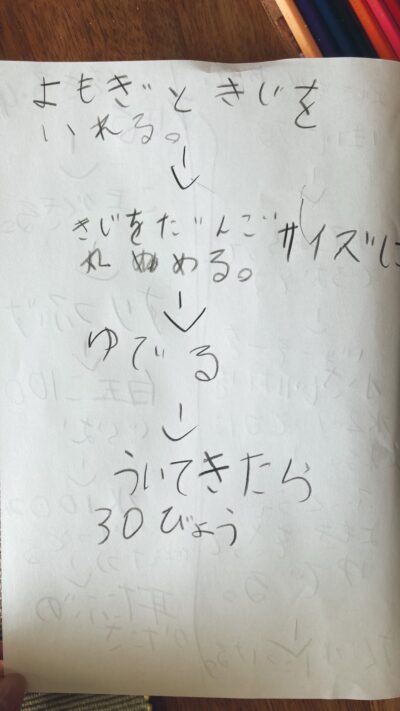 よもぎと きじを
いれる。
↓
きじをだんごサイズに
れぬめる。
↓
ゆでる
↓
ういてきたら
30びょう